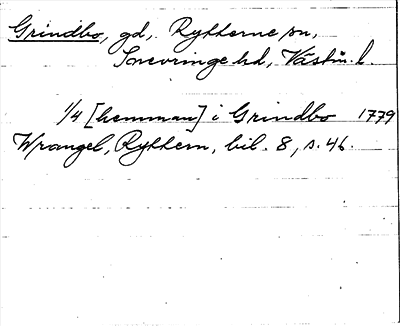 Grindbo, gd, Rytterne sn,
Snevringe hd, Västm. l.
1/4 [hemman] i Grindbo 1779
Wrangel, Ryttern, bil. 8, s. 46.